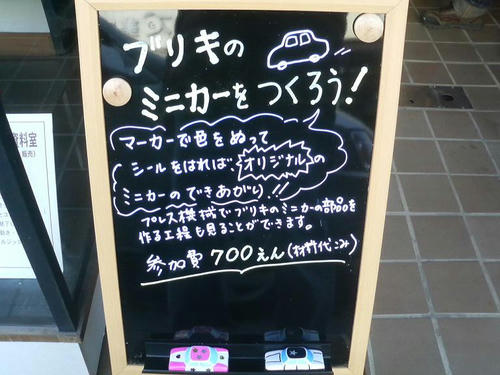 ブリキの
ミニカーをつくろう!
マーカーで色をぬって
シールをはれば、オリジナルの
ミニカーのできあがり!!
プレス機械でブリキのミニカーの部品を
作る工程を見ることができます。
参加費 700えん(材料代こみ)
資料室